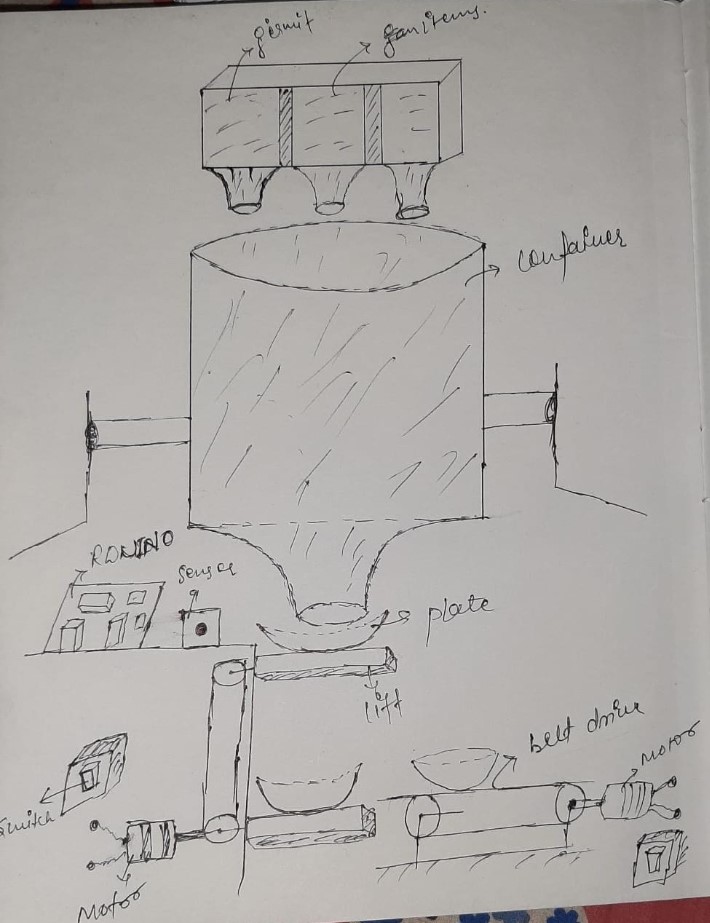 girmit
items.
container
sensor
plate
lift
belt drive
Motor
Switch
Motor